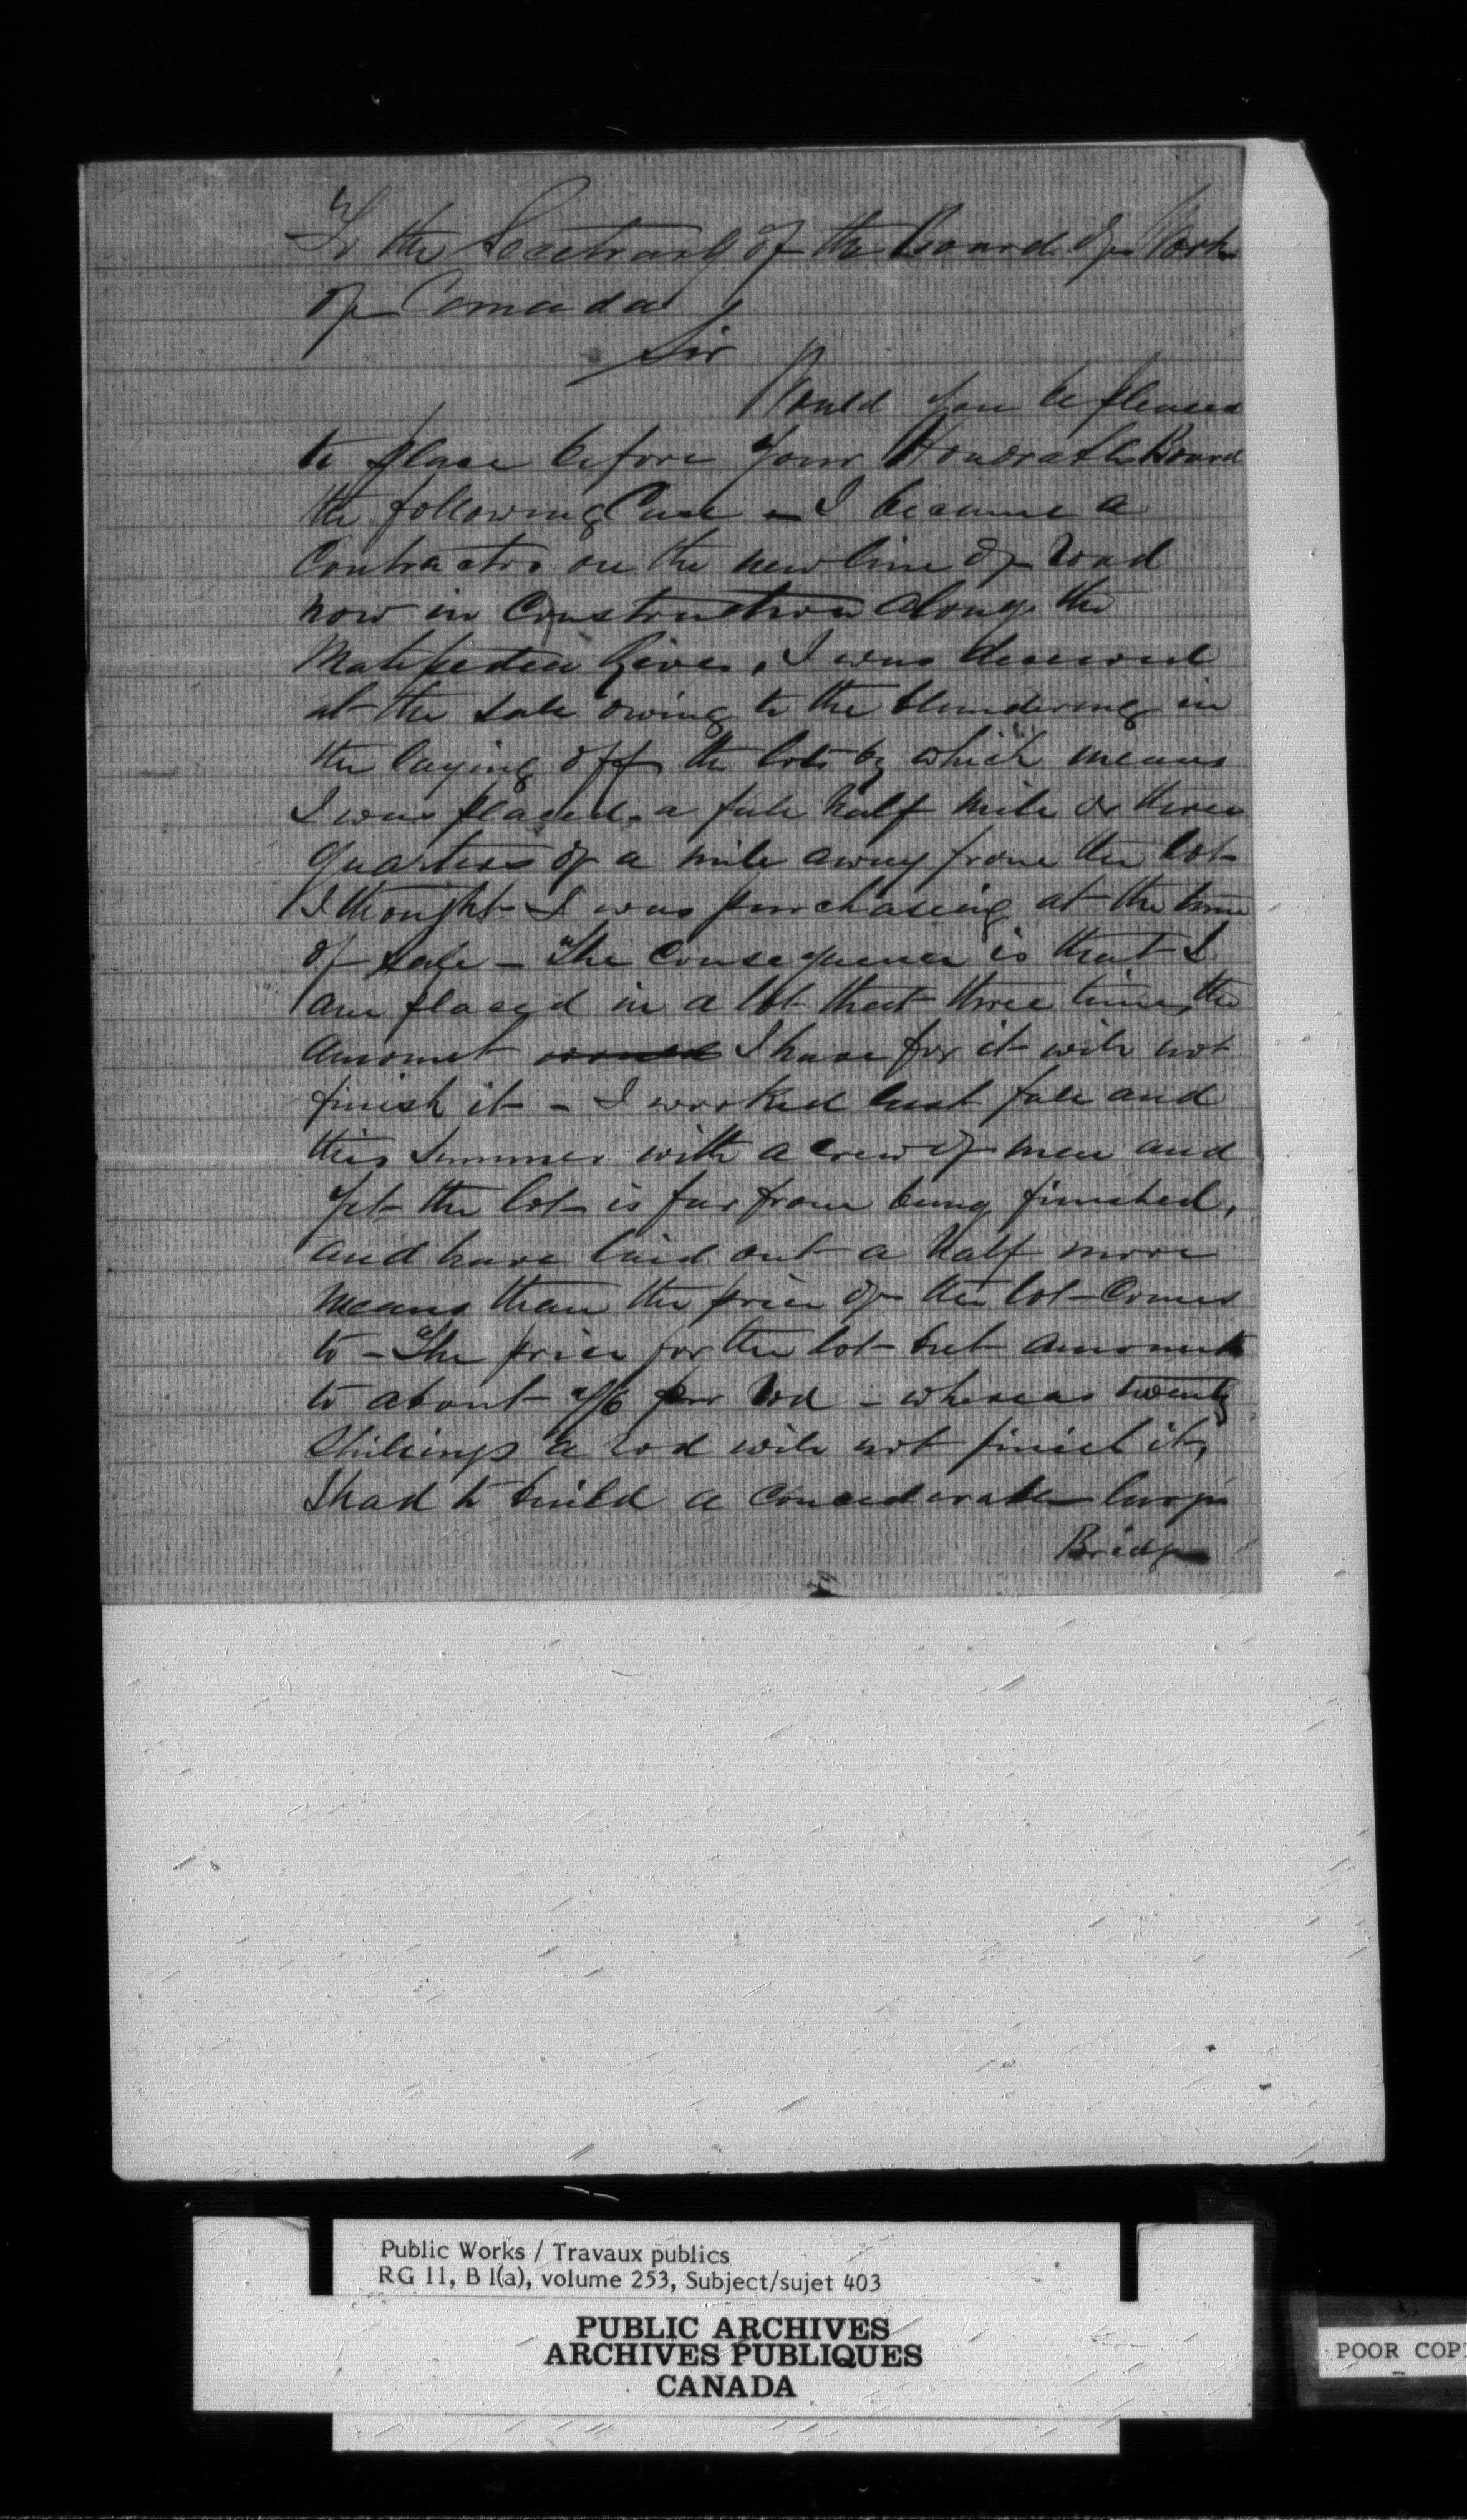 To the Secetrary of the Board of Works
of Canada
Sir
Would you be pleased
to place before your Honorable Board
the following Case – I became a
Contractor on the new line of road
now in Construction along the
Matepedia River, I was deceived
at the sale owing to the blundering in
the laying off the lots by which means
I was placed a full half mile or three
quarters of a mile away from the lot
I thought I was purchasing at the time
of sale – The Consequence is that I
am placed in a lot that three times the
amount I have for it will not
finish it – I worked last fall and
this Summer with a crew of men and
yet the lot is far from being finished,
and have laid out a half more
means than the price of the lot Comes
to – The price for the lot but amounts
to about per rod – whereas twenty
Shillings a rod will not finish it,
I had to build a Concederable large
Bridge
Public Works / Travaux publics
RG 11, B 1(a), volume 253, Subject/sujet 403
PUBLIC ARCHIVES
ARCHIVES PUBLIQUES
CANADA
POOR COP